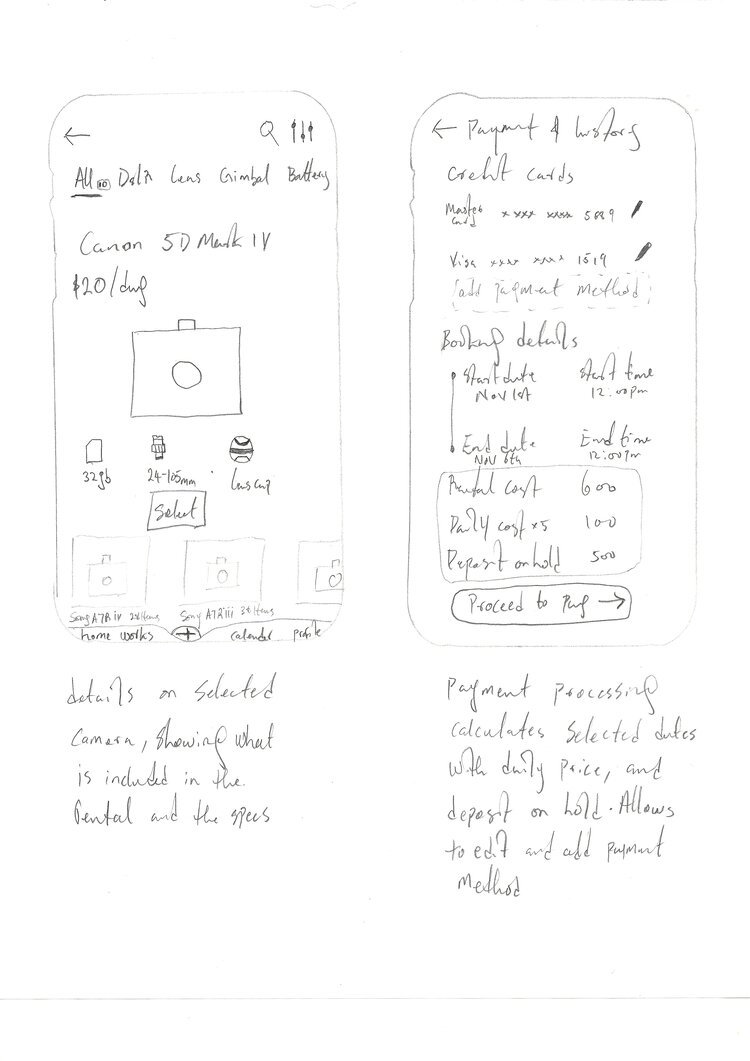 All 10 Lens Gimbal Battery
Canon 5D Mark IV
$20/day
32gb 24-105mm lens cap
Select
Sony A7R iv 28 Items Sony A7R iii 38 Items
home works + calender profile
details on Selected
Camera, Showing what
is included in the
Rental and the specs
← Payment & history
Credit cards
Master card x xxx xxxx 5889
Visa xxxx xxxx 1519
add payment method
Booking details
Start date Start time
Nov 1st 12:00pm
End date End time
Nov 6th 12:00pm
Rental cost 600
Daily cost x5 100
Deposit on hold 500
Proceed to Pay →
Payment Processing
calculates Selected dates
with daily price, and
deposit on hold. Allows
to edit and add payment
Method